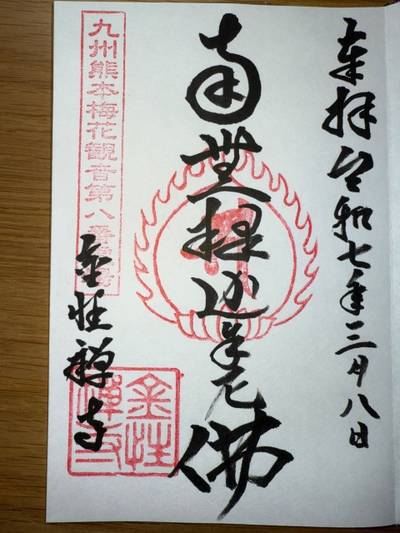 奉拝 令和七年三月八日
南無釋迦牟尼佛
九州熊本梅花観音第八番
金性禅寺
金性禅寺